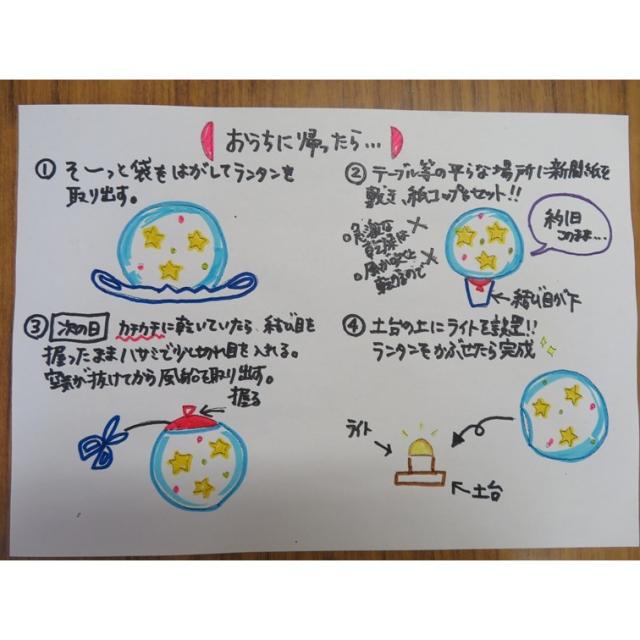 おうちに帰ったら…
① そーっと袋をはがしてランタンを
取り出す。
② テーブル等の平らな場所に新聞紙を
敷き、紙コップをセット!!
急激な
乾燥は×
風がふくと×
転がるので
約1日
このまま…
←結び目が下
③ 次の日 カチカチに乾いていたら、結び目を
握ったままハサミで少し切れ目を入れる。
空気が抜けてから風船を取り出す。
握る
④ 土台の上にライトを設置!!
ランタンをかぶせたら完成
ライト
←土台